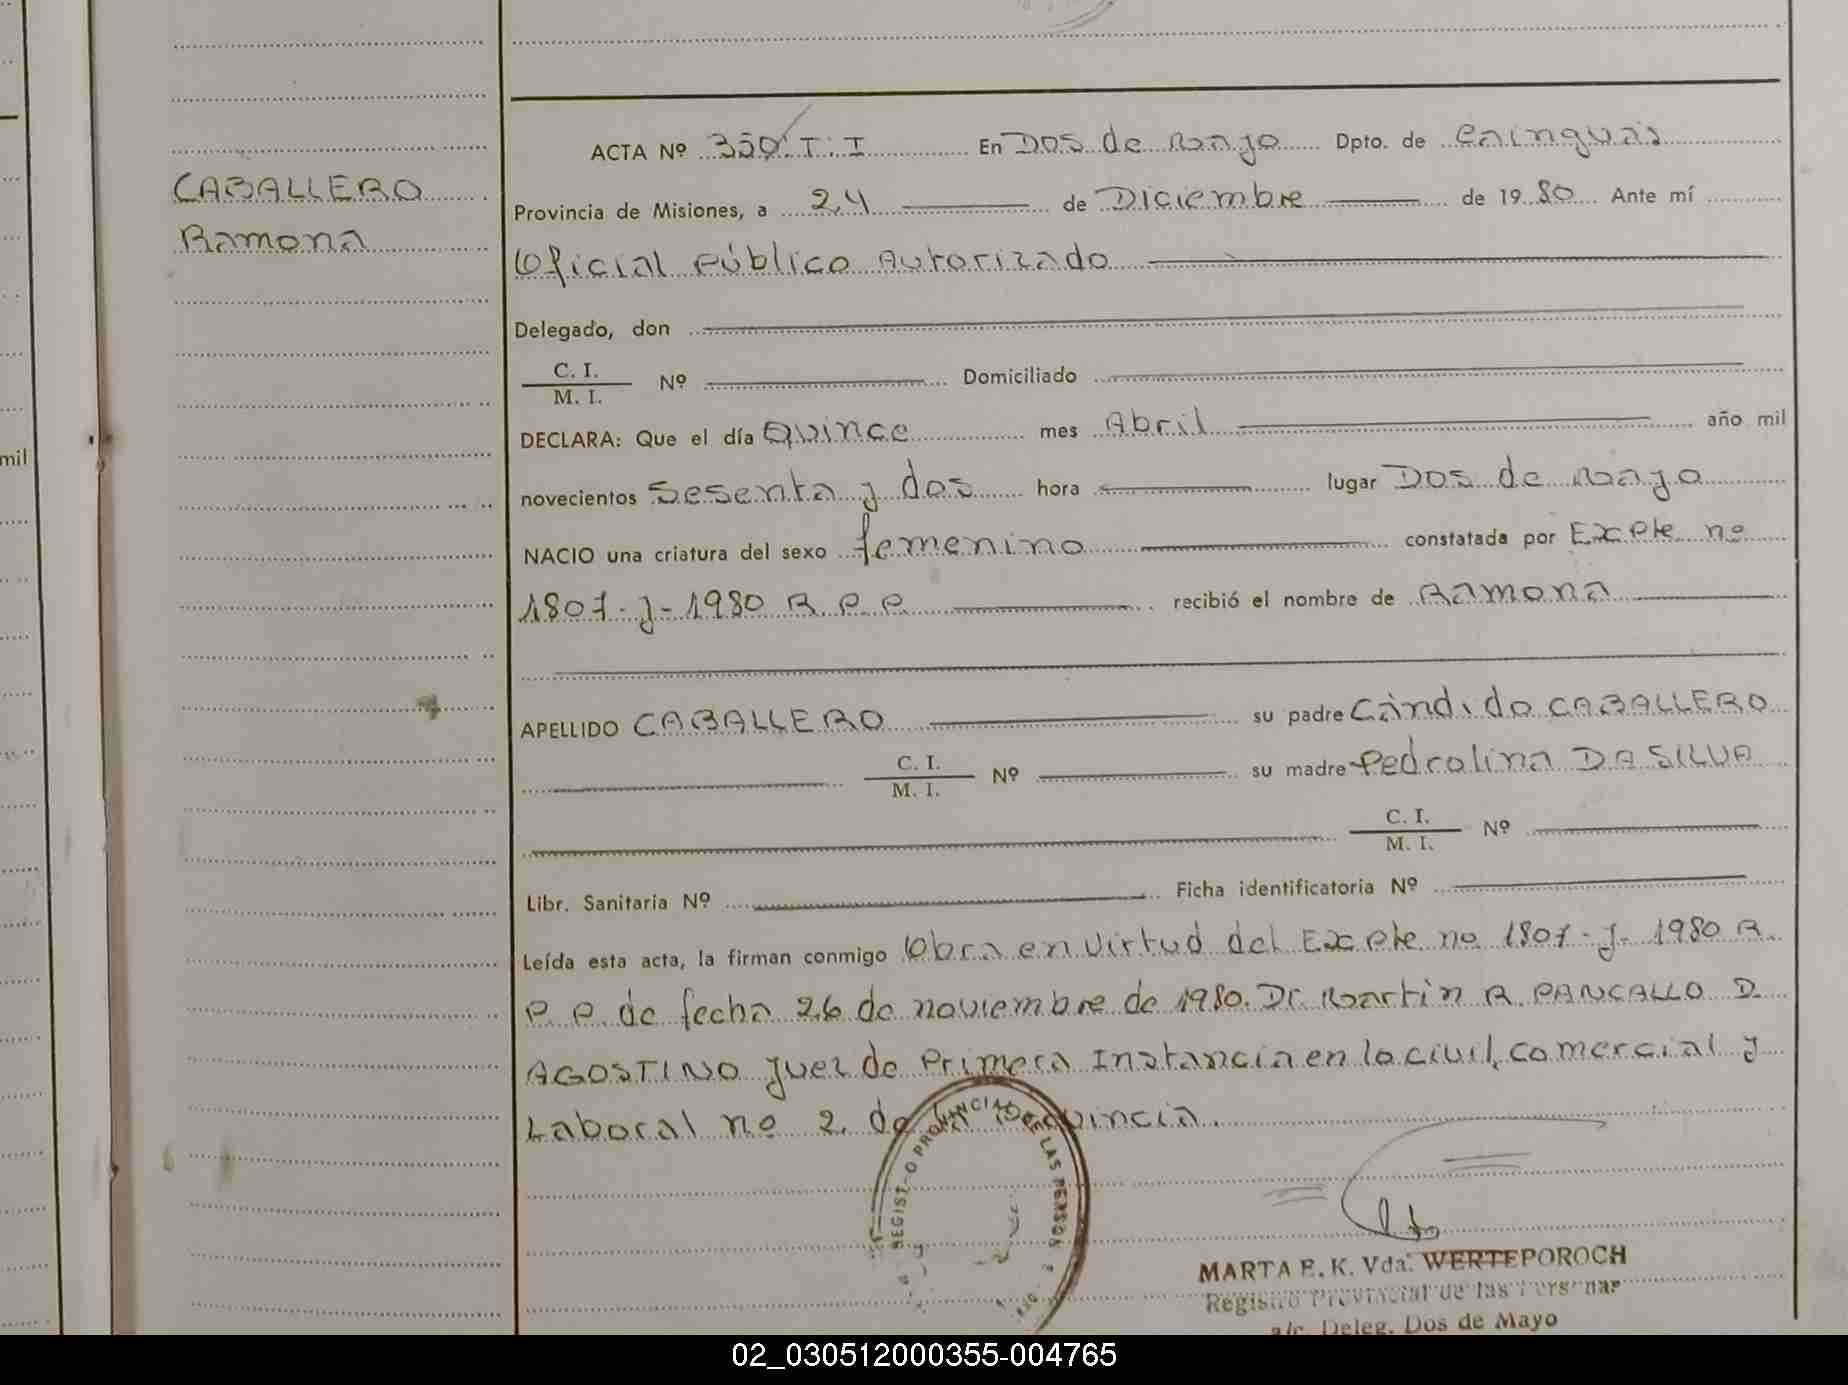 CABALLERO
Ramona
ACTA Nº 350 T. I En Dos de Mayo Dpto. de Cainguás
Provincia de Misiones, a 24 de Diciembre de 1980 Ante mí
Oficial Público Autorizado
Delegado, don
C. I. / M. I. Nº Domiciliado
DECLARA: Que el día Quince mes Abril año mil
novecientos sesenta y dos hora lugar Dos de Mayo
NACIO una criatura del sexo femenino constatada por Expte nº
1807-J-1980 R. P. P. recibió el nombre de Ramona
APELLIDO CABALLERO su padre Cándido CABALLERO
C. I. / M. I. Nº su madre Pedrolina DA SILVA
C. I. / M. I. Nº
Libr. Sanitaria Nº Ficha identificatoria Nº
Leída esta acta, la firman conmigo Obra en virtud del Expte nº 1807-J-1980 R.
P. P. de fecha 26 de noviembre de 1980. Dr. Martín R. PANCALLO D.
AGOSTINO Juez de Primera Instancia en lo civil, comercial y
Laboral nº 2. de la Provincia.
REGISTRO PROVINCIAL DE LAS PERSON
MARTA E. K. Vda. WERTEPOROCH
Registro Provincial de las Personas
a/c. Deleg. Dos de Mayo
mil
02_030512000355-004765